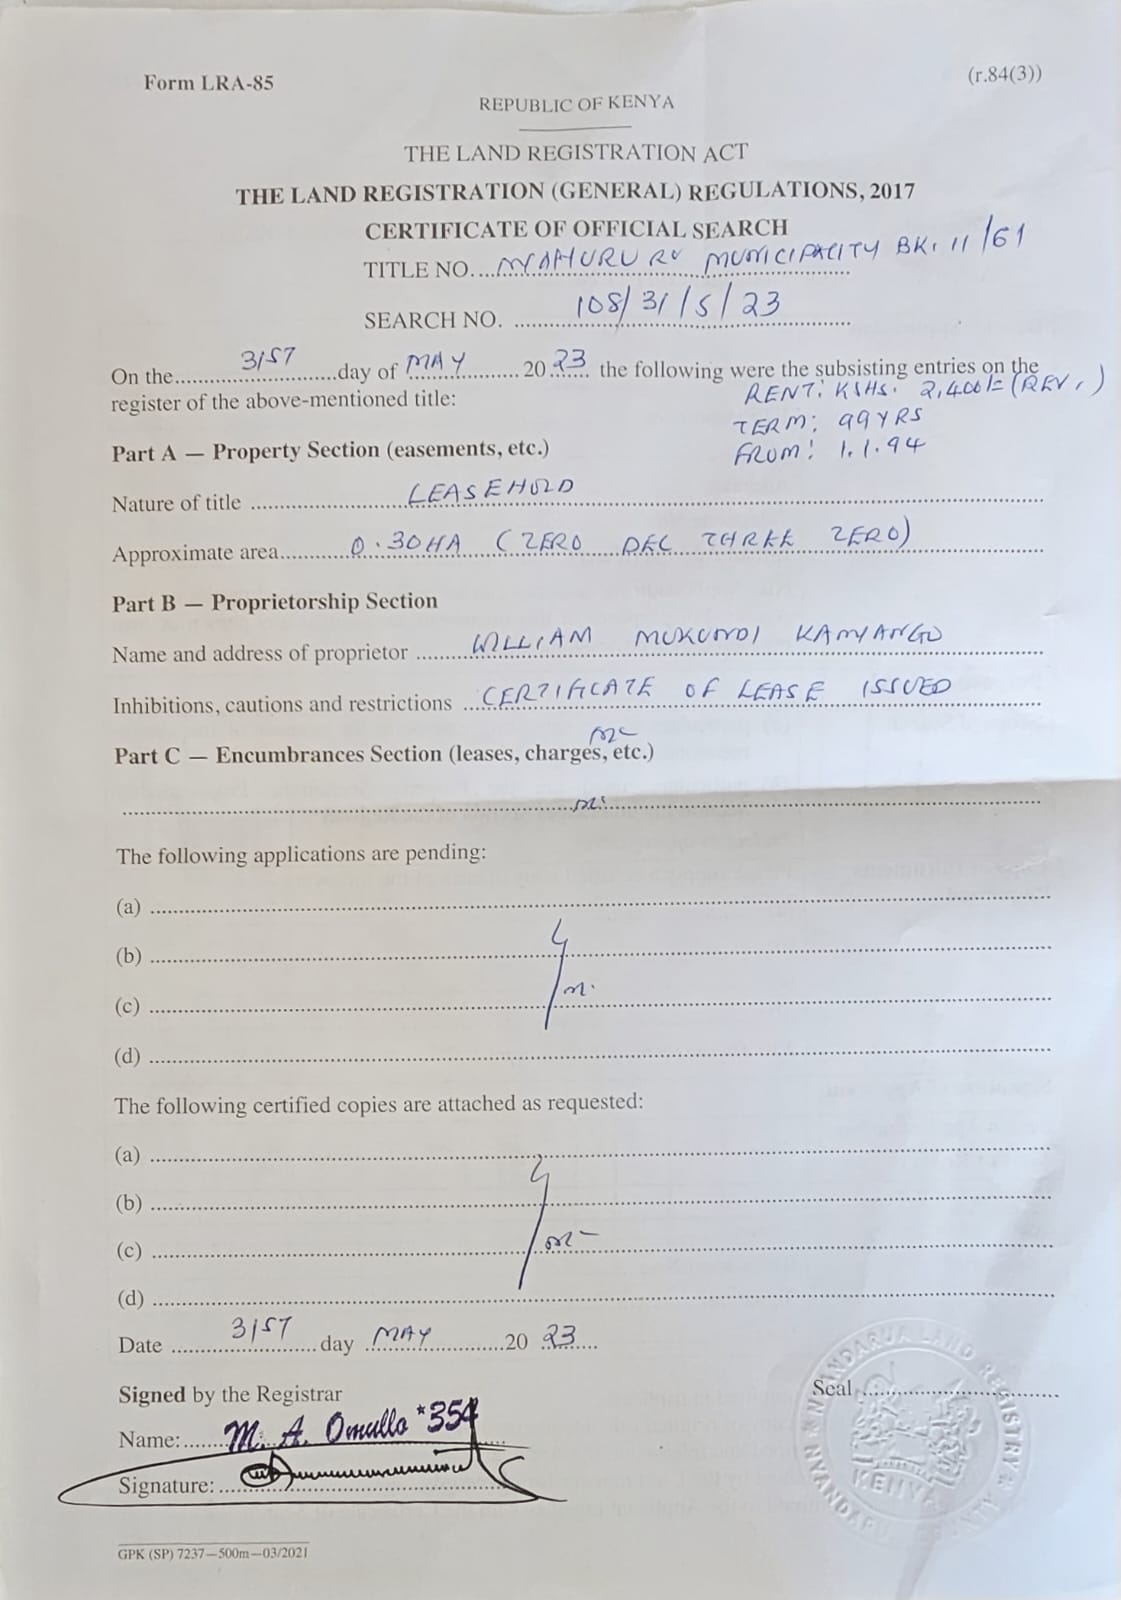 Form LRA-85
(r.84(3))
REPUBLIC OF KENYA
THE LAND REGISTRATION ACT
THE LAND REGISTRATION (GENERAL) REGULATIONS, 2017
CERTIFICATE OF OFFICIAL SEARCH
TITLE NO. NYAHURURU MUNICIPALITY BK. 11/61
SEARCH NO. 108/31/5/23
On the 31ST day of MAY 2023 the following were the subsisting entries on the
register of the above-mentioned title:
RENT: KSHS. 2,400/= (REV.)
TERM: 99YRS
FROM: 1.1.94
Part A — Property Section (easements, etc.)
Nature of title LEASEHOLD
Approximate area 0.30HA (ZERO DEC THREE ZERO)
Part B — Proprietorship Section
Name and address of proprietor WILLIAM MUKUNDI KANYANGO
Inhibitions, cautions and restrictions CERTIFICATE OF LEASE ISSUED
Part C — Encumbrances Section (leases, charges, etc.)
The following applications are pending:
(a)
(b)
(c)
(d)
The following certified copies are attached as requested:
(a)
(b)
(c)
(d)
Date 31ST day MAY 2023
Signed by the Registrar
Seal
Name: M. A. Omullo *354
Signature:
NYANDARUA LAND REGISTRY
NYANDARUA COUNTY
KENYA
GPK (SP) 7237—500m—03/2021